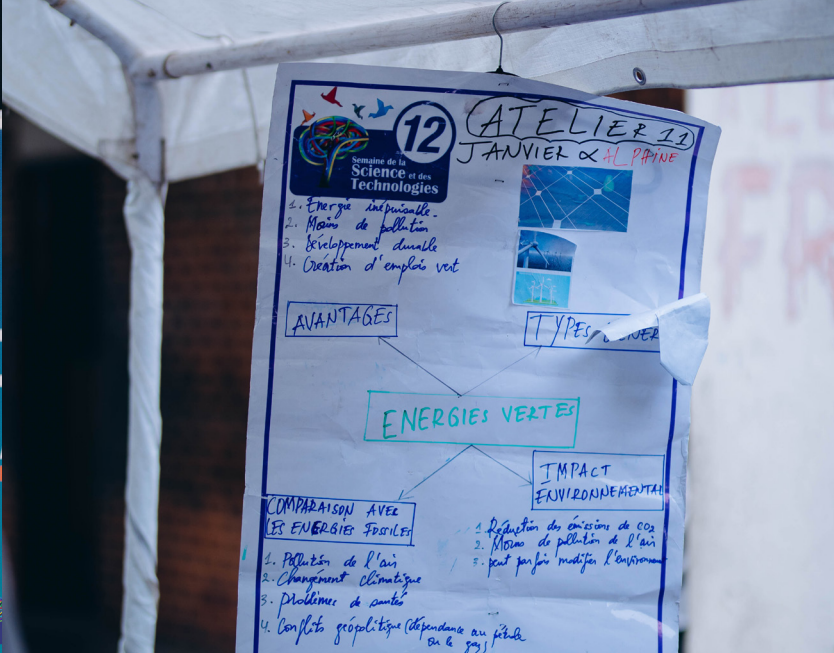 12
Semaine de la
Science et des
Technologies
ATELIER 11
JANVIER & ALPHINE
1. Energie inépuisable.
2. Moins de pollution
3. Développement durable
4. Création d'emplois vert
AVANTAGES
TYPES
ENERGIES VERTES
IMPACT
ENVIRONNEMENTAL
COMPARAISON AVEC
LES ENERGIES FOSSILES
1. Réduction des émissions de CO2
2. Moins de pollution de l'air
3. peut parfois modifier l'environnem
1. Pollution de l'air
2. Changement climatique
3. problèmes de santé
4. Conflits géopolitique (dépendance au pétrole
ou le gaz)